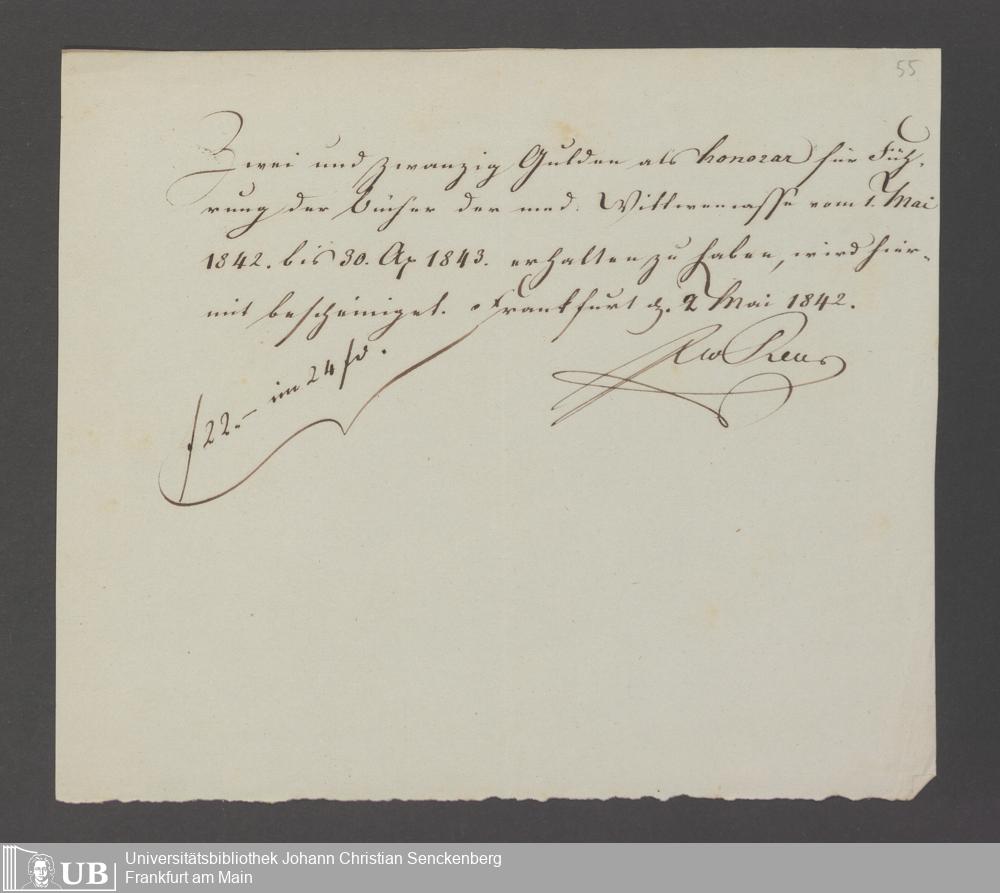 55
Zwei und zwanzig Gulden als honorar für Füh-
rung der Bücher der med. Wittwencasse vom 1. Mai
1842. bis 30. Ap 1843. erhalten zu haben, wird hier-
mit bescheiniget. Frankfurt d. 2 Mai 1842.
f 22.– im 24 fd.
Universitätsbibliothek Johann Christian Senckenberg
Frankfurt am Main
UB